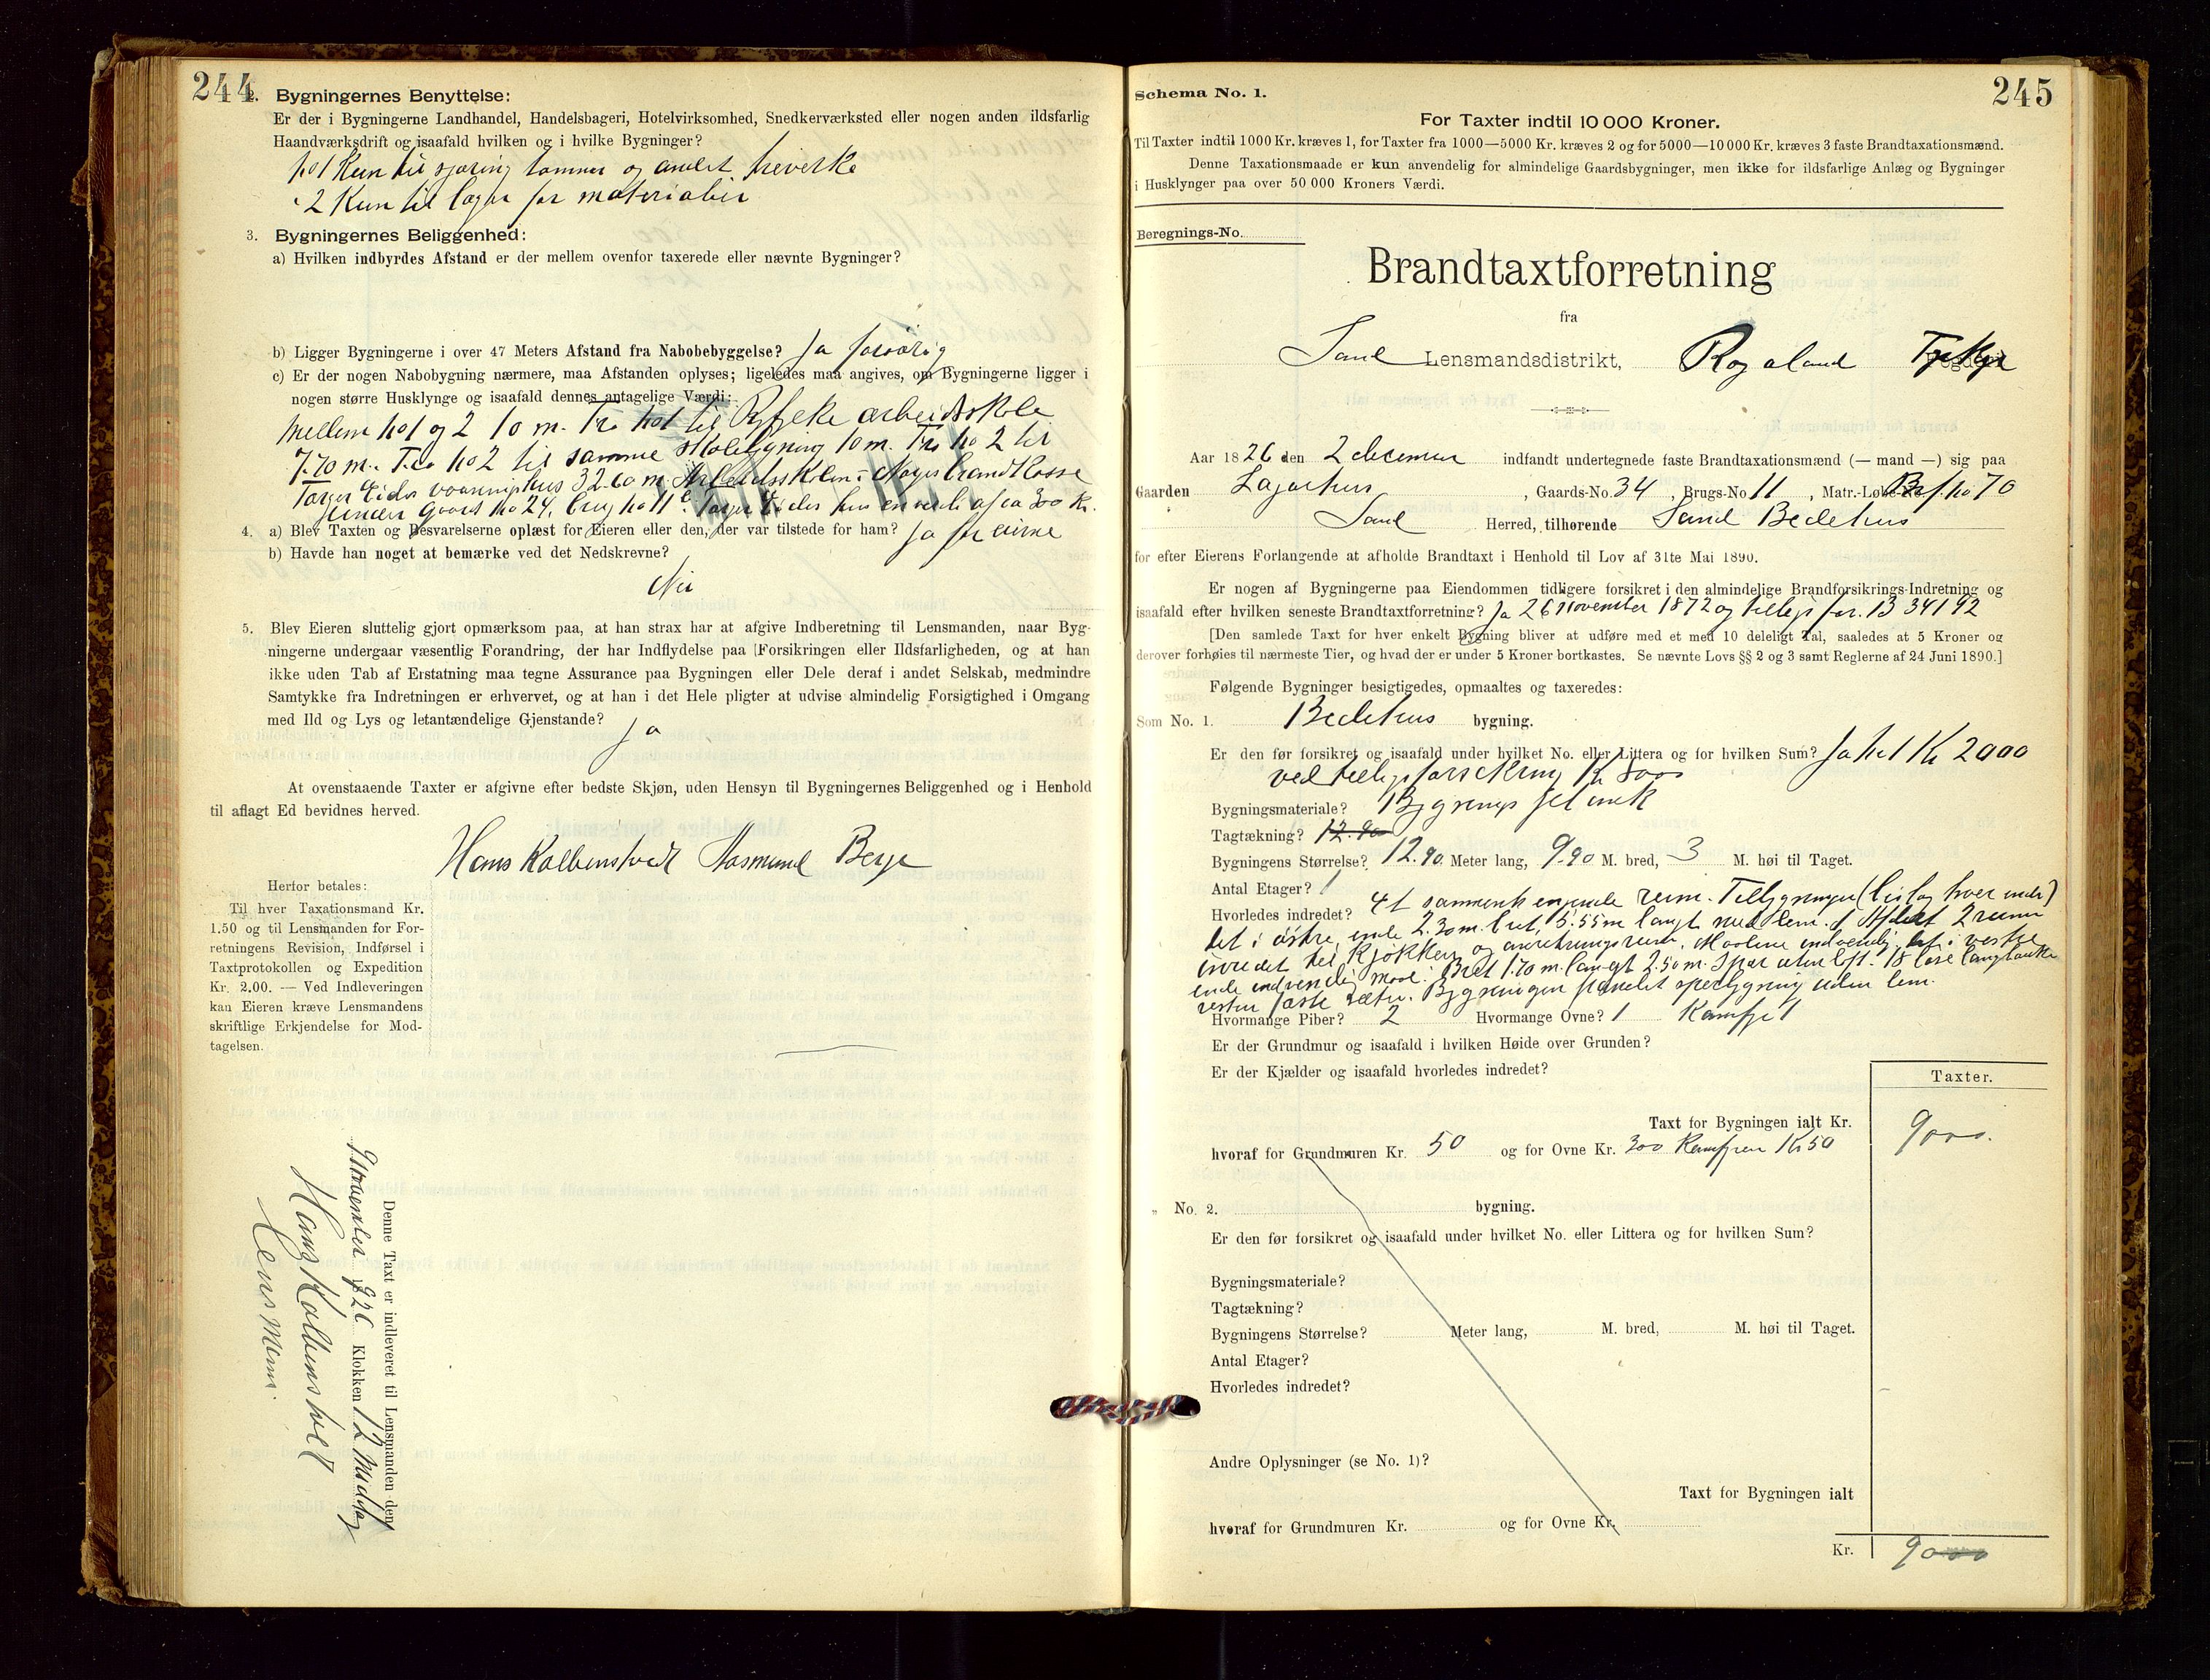 244
2. Bygningernes Benyttelse:
Er der i Bygningerne Landhandel, Handelsbageri, Hotelvirksomhed, Snedkerværksted eller nogen anden ildsfarlig
Haandværksdrift og isaafald hvilken og i hvilke Bygninger?
No 1 Kun til skjæring tømmer og andet treverke
" 2 Kun til lager for materialier
3. Bygningernes Beliggenhed:
a) Hvilken indbyrdes Afstand er der mellem ovenfor taxerede eller nævnte Bygninger?
b) Ligger Bygningerne i over 47 Meters Afstand fra Nabobebyggelse? Ja forøvrig
c) Er der nogen Nabobygning nærmere, maa Afstanden oplyses; ligeledes maa angives, om Bygningerne ligger i
nogen større Husklynge og isaafald dennes antagelige Værdi:
Mellem No 1 og 2 10 m. Fra No 1 til Ryfylke arbeidsskole
7.70 m. Fra No 2 til samme skolebygning 10 m. Fra No 2 til
Torger Eides vaaningshus 32.60 m. Arbeidsskolen i Norges brandkasse
under gaards No 24, brug No 11. Torger Eides hus en verdi af ca 300 Kr.
4. a) Blev Taxten og Besvarelserne oplæst for Eieren eller den, der var tilstede for ham? Ja for eierne
b) Havde han noget at bemærke ved det Nedskrevne?
Nei
5. Blev Eieren sluttelig gjort opmærksom paa, at han strax har at afgive Indberetning til Lensmanden, naar Byg-
ningerne undergaar væsentlig Forandring, der har Indflydelse paa Forsikringen eller Ildsfarligheden, og at han
ikke uden Tab af Erstatning maa tegne Assurance paa Bygningen eller Dele deraf i andet Selskab, medmindre
Samtykke fra Indretningen er erhvervet, og at han i det Hele pligter at udvise almindelig Forsigtighed i Omgang
med Ild og Lys og letantændelige Gjenstande?
Ja
At ovenstaaende Taxter er afgivne efter bedste Skjøn, uden Hensyn til Bygningernes Beliggenhed og i Henhold
til aflagt Ed bevidnes herved.
Hans Kolbenstvedt Aasmund Berge
Herfor betales:
Til hver Taxationsmand Kr.
1.50 og til Lensmanden for For-
retningens Revision, Indførsel i
Taxtprotokollen og Expedition
Kr. 2.00. — Ved Indleveringen
kan Eieren kræve Lensmandens
skriftlige Erkjendelse for Mod-
tagelsen.
Denne Taxt er indleveret til Lensmanden den
1926 Klokken 12 Middag
Hans Kolbenstvedt
Lensmann
245
Schema No. 1.
For Taxter indtil 10 000 Kroner.
Til Taxter indtil 1000 Kr. kræves 1, for Taxter fra 1000—5000 Kr. kræves 2 og for 5000—10 000 Kr. kræves 3 faste Brandtaxationsmænd.
Denne Taxationsmaade er kun anvendelig for almindelige Gaardsbygninger, men ikke for ildsfarlige Anlæg og Bygninger
i Husklynger paa over 50 000 Kroners Værdi.
Beregnings-No.
Brandtaxtforretning
fra
Sand Lensmandsdistrikt, Rogaland Fylke
Aar 1826 den 2 decemer indfandt undertegnede faste Brandtaxationsmænd (— mand —) sig paa
Gaarden , Gaards-No. 34 , Brugs-No 11 , Matr.-Løbe-No. No 70
Sand Herred, tilhørende Sand Bedehus
for efter Eierens Forlangende at afholde Brandtaxt i Henhold til Lov af 31te Mai 1890.
Er nogen af Bygningerne paa Eiendommen tidligere forsikret i den almindelige Brandforsikrings-Indretning og
isaafald efter hvilken seneste Brandtaxtforretning? Ja 26 november 1872 og tillegsfor. B 34192
[Den samlede Taxt for hver enkelt Bygning bliver at udføre med et med 10 deleligt Tal, saaledes at 5 Kroner og
derover forhøies til nærmeste Tier, og hvad der er under 5 Kroner bortkastes. Se nævnte Lovs §§ 2 og 3 samt Reglerne af 24 Juni 1890.]
Følgende Bygninger besigtigedes, opmaaltes og taxeredes:
Som No. 1. Bedehus bygning.
Er den før forsikret og isaafald under hvilket No. eller Littera og for hvilken Sum? Ja No 1 Kr 2000
ved tillegsforsikring Kr 8000
Bygningsmateriale? Bygnings
Tagtækning? 12.90
Bygningens Størrelse? 12.90 Meter lang, 9.90 M. bred, 3 M. høi til Taget.
Antal Etager? 1
Hvorledes indredet? Et sammenhengende rum. Tilbygninger
det i østre ende 2.30 m. bret, 5.55 m langt 2 rum
indredet til Kjøkken og anretningsrum.
ende indvendig maal: Bret 1.70 m. langt 2.50 m.
Hvormange Piber? 2 Hvormange Ovne? 1 Kamfyr 1
Er der Grundmur og isaafald i hvilken Høide over Grunden?
Er der Kjælder og isaafald hvorledes indredet?
Taxter.
Taxt for Bygningen ialt Kr. 9000.
hvoraf for Grundmuren Kr. 50 og for Ovne Kr. 300 Kamfyren Kr 50
" No. 2. bygning.
Er den før forsikret og isaafald under hvilket No. eller Littera og for hvilken Sum?
Bygningsmateriale?
Tagtækning?
Bygningens Størrelse? Meter lang, M. bred, M. høi til Taget.
Antal Etager?
Hvorledes indredet?
Andre Oplysninger (se No. 1)?
Taxt for Bygningen ialt
hvoraf for Grundmuren Kr. og for Ovne Kr.
Kr. 9000